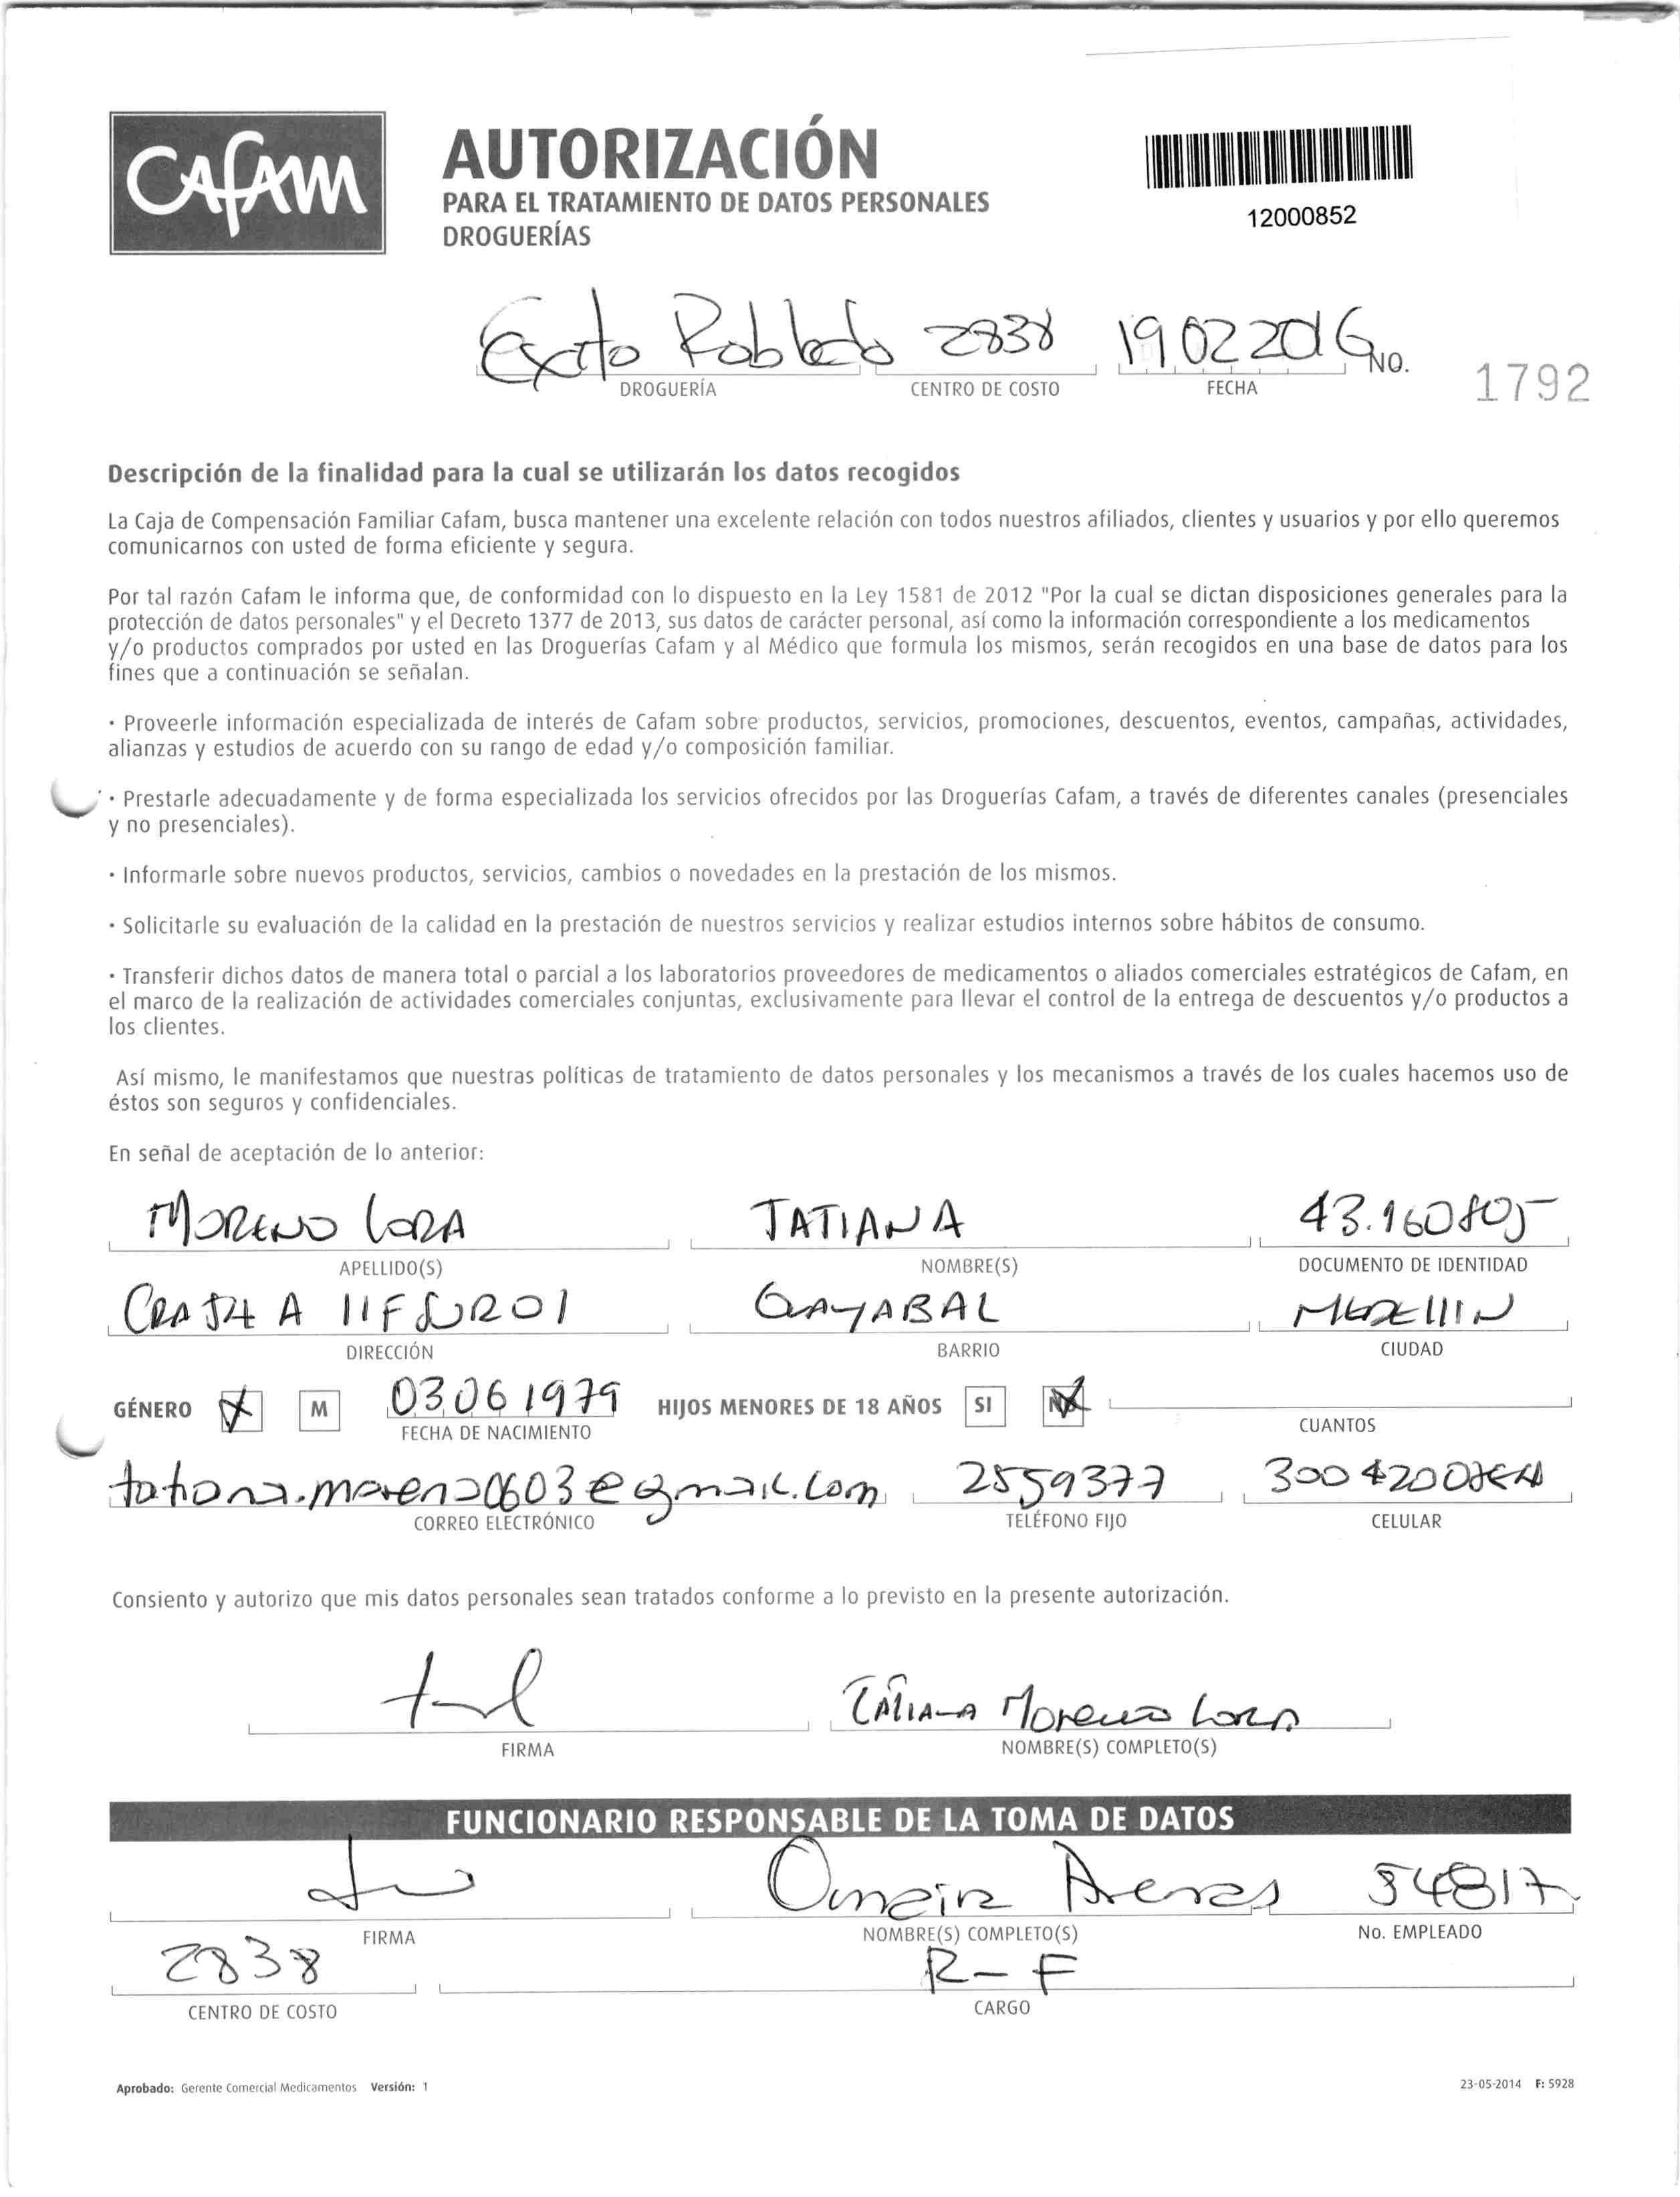 CAFAM
AUTORIZACIÓN
PARA EL TRATAMIENTO DE DATOS PERSONALES
DROGUERÍAS
12000852
Exito Robledo 2838 19022016 NO. 1792
DROGUERÍA CENTRO DE COSTO FECHA
Descripción de la finalidad para la cual se utilizarán los datos recogidos
La Caja de Compensación Familiar Cafam, busca mantener una excelente relación con todos nuestros afiliados, clientes y usuarios y por ello queremos
comunicarnos con usted de forma eficiente y segura.
Por tal razón Cafam le informa que, de conformidad con lo dispuesto en la Ley 1581 de 2012 "Por la cual se dictan disposiciones generales para la
protección de datos personales" y el Decreto 1377 de 2013, sus datos de carácter personal, así como la información correspondiente a los medicamentos
y/o productos comprados por usted en las Droguerías Cafam y al Médico que formula los mismos, serán recogidos en una base de datos para los
fines que a continuación se señalan.
· Proveerle información especializada de interés de Cafam sobre productos, servicios, promociones, descuentos, eventos, campañas, actividades,
alianzas y estudios de acuerdo con su rango de edad y/o composición familiar.
· Prestarle adecuadamente y de forma especializada los servicios ofrecidos por las Droguerías Cafam, a través de diferentes canales (presenciales
y no presenciales).
· Informarle sobre nuevos productos, servicios, cambios o novedades en la prestación de los mismos.
· Solicitarle su evaluación de la calidad en la prestación de nuestros servicios y realizar estudios internos sobre hábitos de consumo.
· Transferir dichos datos de manera total o parcial a los laboratorios proveedores de medicamentos o aliados comerciales estratégicos de Cafam, en
el marco de la realización de actividades comerciales conjuntas, exclusivamente para llevar el control de la entrega de descuentos y/o productos a
los clientes.
Así mismo, le manifestamos que nuestras políticas de tratamiento de datos personales y los mecanismos a través de los cuales hacemos uso de
éstos son seguros y confidenciales.
En señal de aceptación de lo anterior:
MORENO LORA TATIANA 43.160805
APELLIDO(S) NOMBRE(S) DOCUMENTO DE IDENTIDAD
CRA 54 A 11F SUR 01 GUAYABAL MEDELLIN
DIRECCIÓN BARRIO CIUDAD
GÉNERO M 03061979 HIJOS MENORES DE 18 AÑOS SI NO
FECHA DE NACIMIENTO CUANTOS
tatiana.moreno0603@gmail.com 2559377
CORREO ELECTRÓNICO TELÉFONO FIJO CELULAR
Consiento y autorizo que mis datos personales sean tratados conforme a lo previsto en la presente autorización.
TATIANA Moreno Lora
FIRMA NOMBRE(S) COMPLETO(S)
FUNCIONARIO RESPONSABLE DE LA TOMA DE DATOS
Omaira Arenas 54817
FIRMA NOMBRE(S) COMPLETO(S) No. EMPLEADO
2838 R-F
CENTRO DE COSTO CARGO
Aprobado: Gerente Comercial Medicamentos Versión: 1 23-05-2014 F: 5928